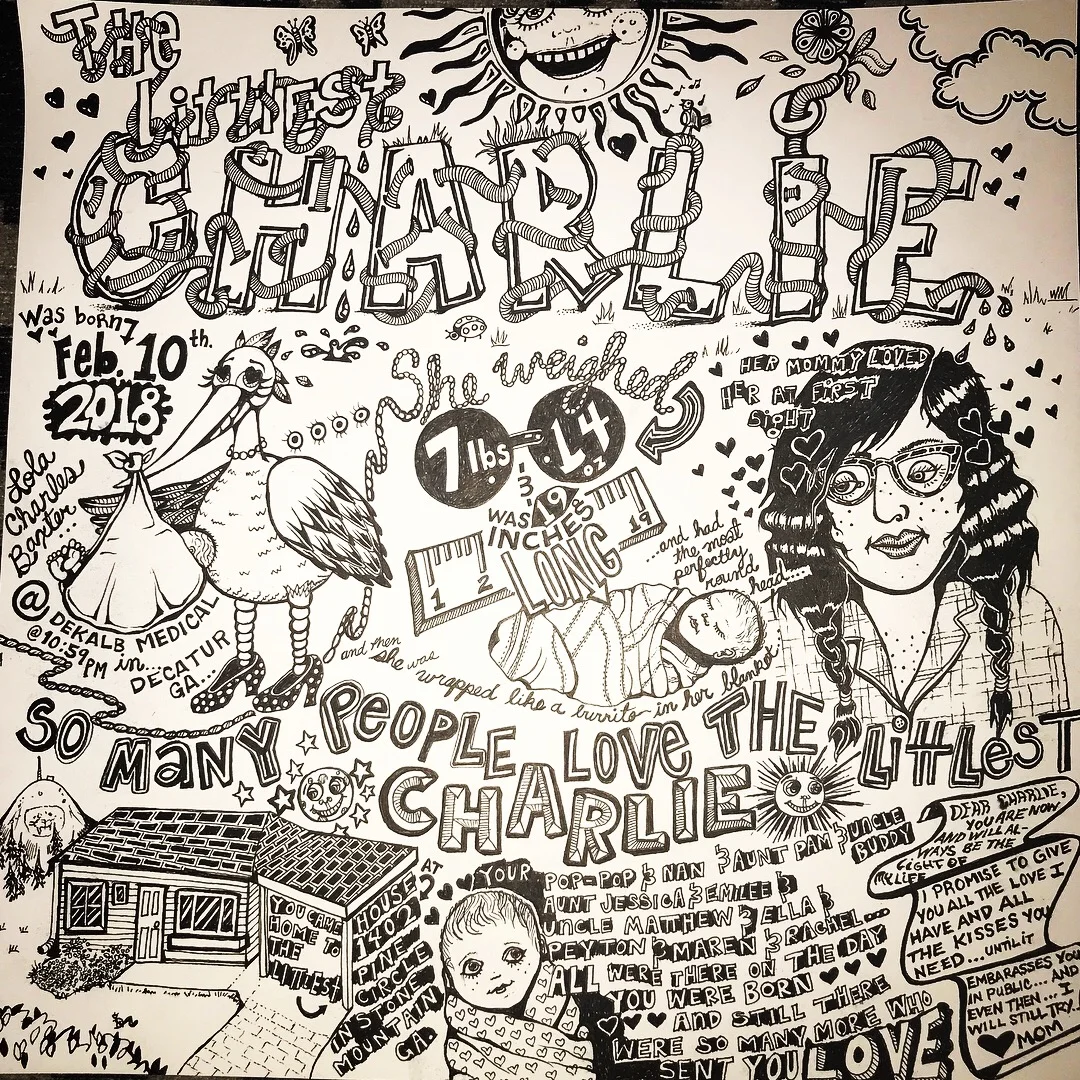 The
Littlest
CHARLiE
Was born
Feb. 10th.
2018
Lola
Charles
Baxter
@ DEKALB MEDICAL
@10:59PM in...
DECATUR
GA...
She weighed
7 lbs . 14 oz
&
WAS 19
INCHES
LONG
1 2 19
...and had
the most
perfectly
round
head...
and then
she was
wrapped like a burrito in her blanket
HER MOMMY LOVED
HER AT FIRST
SIGHT
SO MANY PEOPLE LOVE THE LittLesT
CHARLIE
YOU CAME
HOME TO
THE
LITTLEST
HOUSE
AT
1402
PINE
CIRCLE
IN STONE
MOUNTAIN
GA.
YOUR POP-POP & NAN & AUNT PAM & UNCLE
BUDDY
AUNT JESSICA & EMILEE &
UNCLE MATTHEW & ELLA &
PEYTON & MAREN & RACHEL...
ALL WERE THERE ON THE DAY
YOU WERE BORN
AND STILL THERE
WERE SO MANY MORE WHO
SENT YOU LOVE
DEAR CHARLIE,
YOU ARE NOW
AND WILL AL-
WAYS BE THE
LIGHT OF
MY LIFE
I PROMISE TO GIVE
YOU ALL THE LOVE I
HAVE AND ALL
THE KISSES YOU
NEED...UNTiL iT
EMBARASSES YOU
IN PUBLIC... AND
EVEN THEN... I
WILL STILL TRY...
MOM